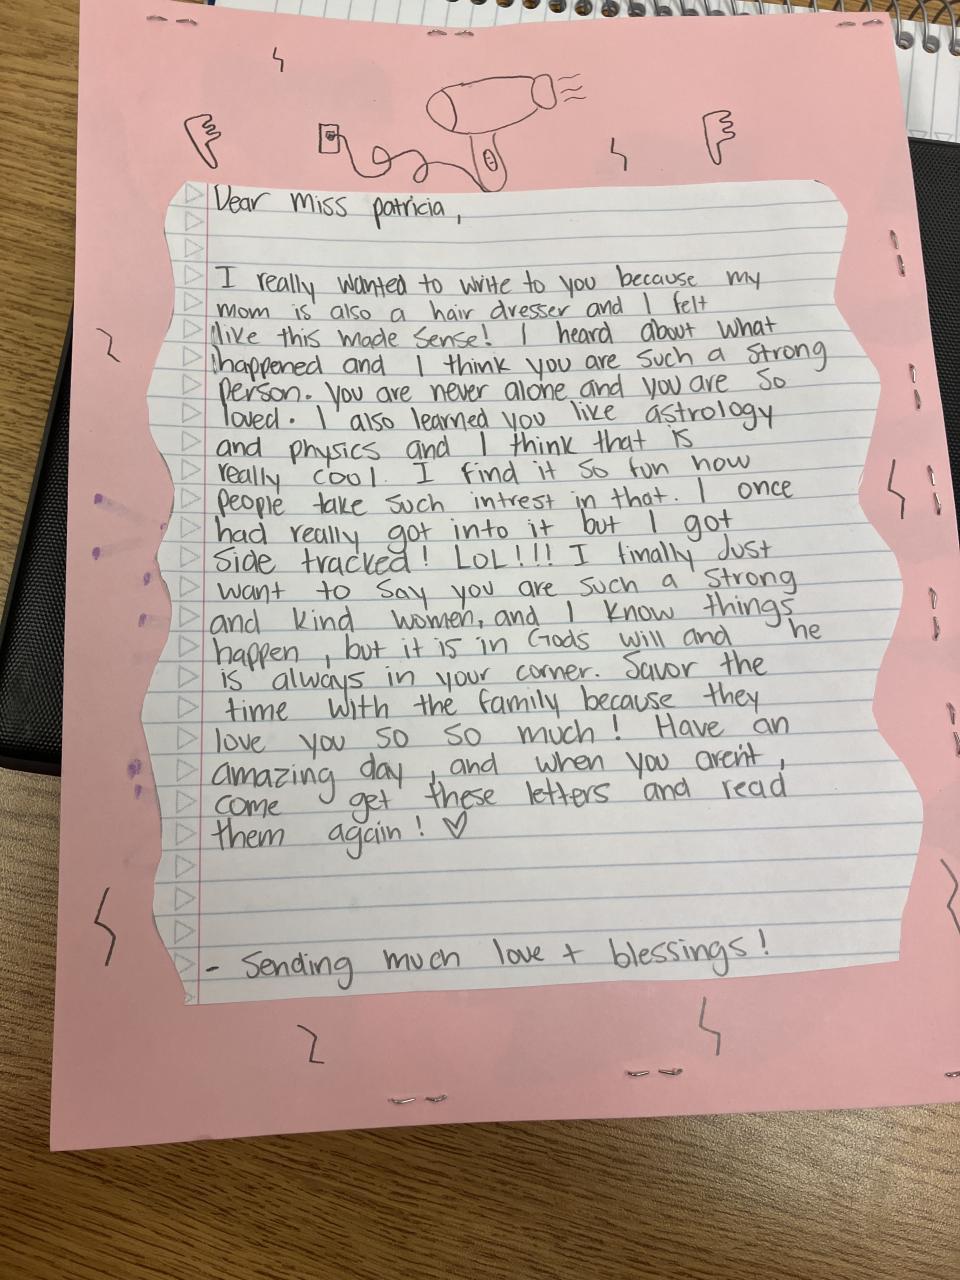 Dear miss patricia,
I really wanted to write to you because my
mom is also a hair dresser and I felt
like this made sense! I heard about what
happened and I think you are such a strong
person. you are never alone and you are so
loved. I also learned you like astrology
and physics and I think that is
really cool. I find it so fun how
people take such intrest in that. I once
had really got into it but I got
side tracked! LOL!!! I finally Just
want to say you are such a strong
and kind women, and I know things
happen, but it is in Gods will and he
is always in your corner. Savor the
time with the family because they
love you so so much! Have an
amazing day, and when you aren't,
come get these letters and read
them again! ♡
- Sending much love + blessings!